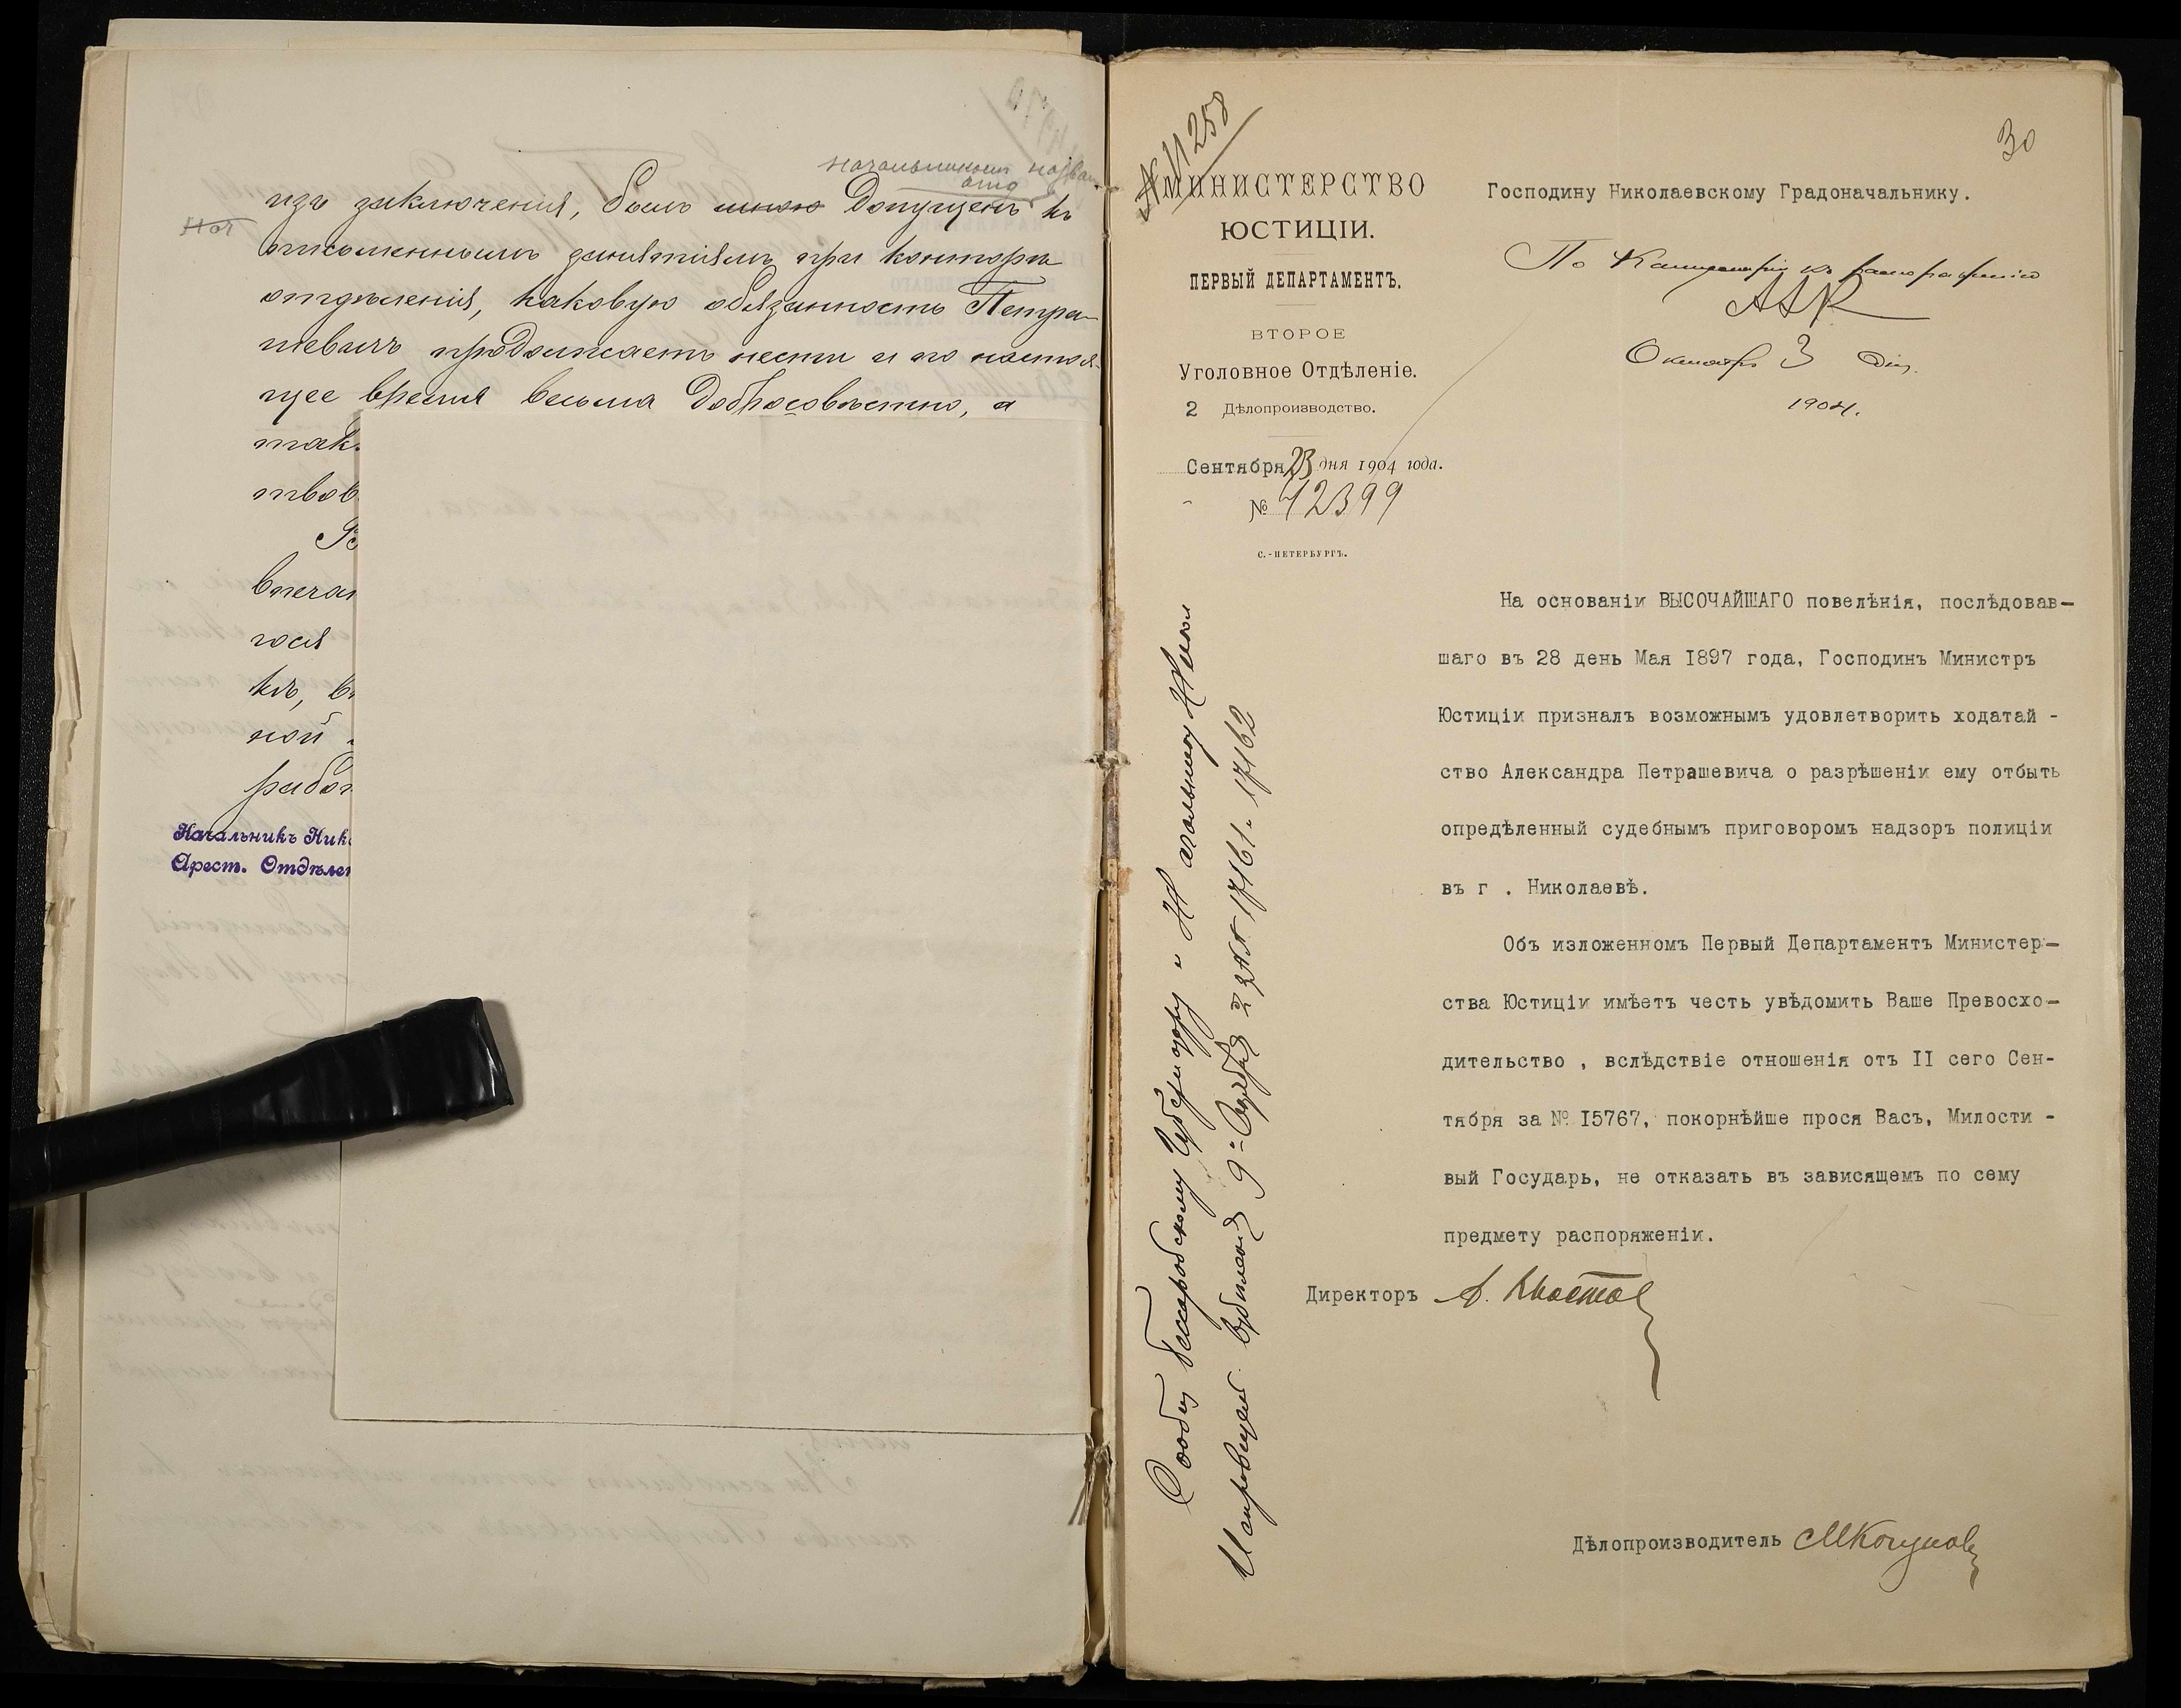 начальникомъ
отд
изъ заключенія, былъ мною допущенъ къ
Нач
письменнымъ занятіямъ при конторѣ
отдѣленія, каковую обязанность Петра-
шевичъ продолжаетъ нести и по настоя-
щее время весьма добросовѣстно, а
так
твов
впеча
гося
къ, в
ной
работ
Начальникъ Ник
Арест. Отдѣле
№ 11258
30
МИНИСТЕРСТВО
ЮСТИЦІИ.
ПЕРВЫЙ ДЕПАРТАМЕНТЪ.
ВТОРОЕ
Уголовное Отдѣленіе.
2 Дѣлопроизводство.
Сентября 23 дня 1904 года.
№ 42399
С.-ПЕТЕРБУРГЪ.
Господину Николаевскому Градоначальнику.
По Канцеляріи къ распоряженію
Октября 3 дня
1904.
На основаніи ВЫСОЧАЙШАГО повелѣнія, послѣдовав-
шаго въ 28 день Мая I897 года, Господинъ Министръ
Юстиціи призналъ возможнымъ удовлетворить ходатай -
ство Александра Петрашевича о разрѣшеніи ему отбыть
опредѣленный судебнымъ приговоромъ надзоръ полиціи
въ г . Николаевѣ.
Объ изложенномъ Первый Департаментъ Министер-
ства Юстиціи имѣетъ честь увѣдомить Ваше Превосхо-
дительство , вслѣдствіе отношенія отъ II сего Сен-
тября за № I5767, покорнѣйше прося Васъ, Милости -
вый Государь, не отказать въ зависящемъ по сему
предмету распоряженіи.
Директоръ
Дѣлопроизводитель
Сообщ Бессарабскому Губернатору и Начальнику Никол
Исправител 9 Октября за №№ 17161 и 17162